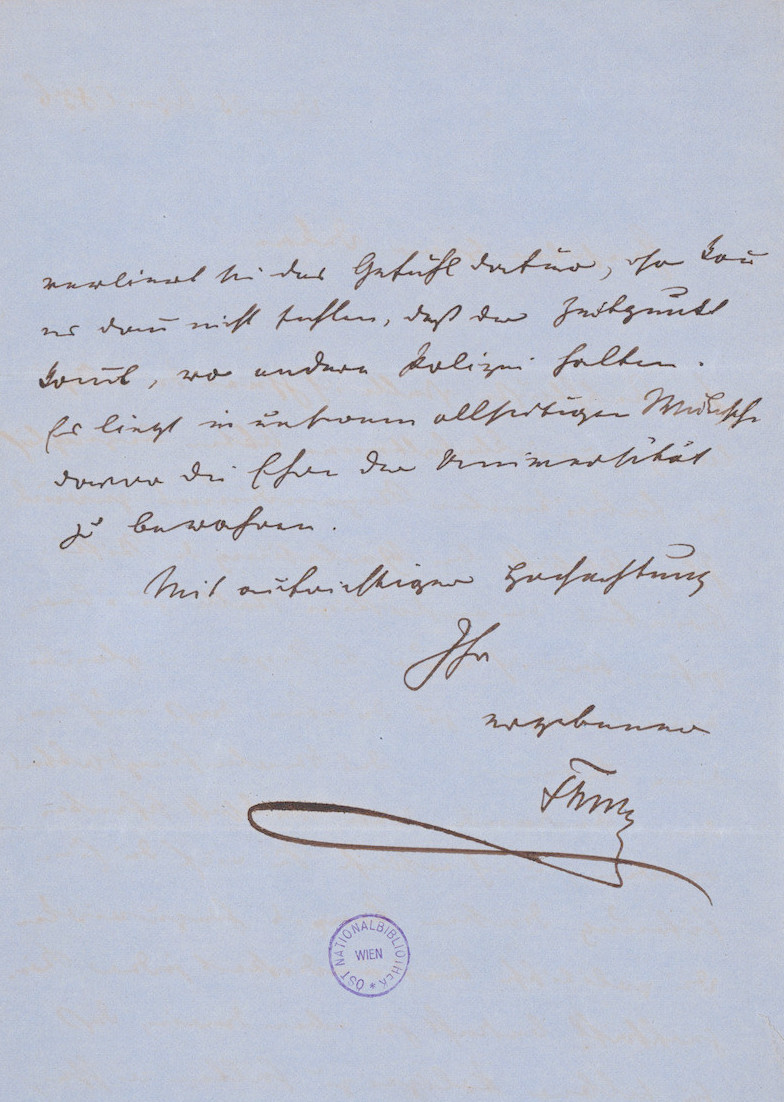 verliert sie das Gefühl dafür, so kan̅
es dan̅ nicht fehlen, daß der Zeitpunkt
kom̅t, wo andere Polizei halten.
Es liegt in unserem allseitigen Wunsche
davor die Ehre der Universität
zu bewahren.
Mit aufrichtiger Hochachtung
Ihr
ergebener
ÖST. NATIONALBIBLIOTHEK
WIEN